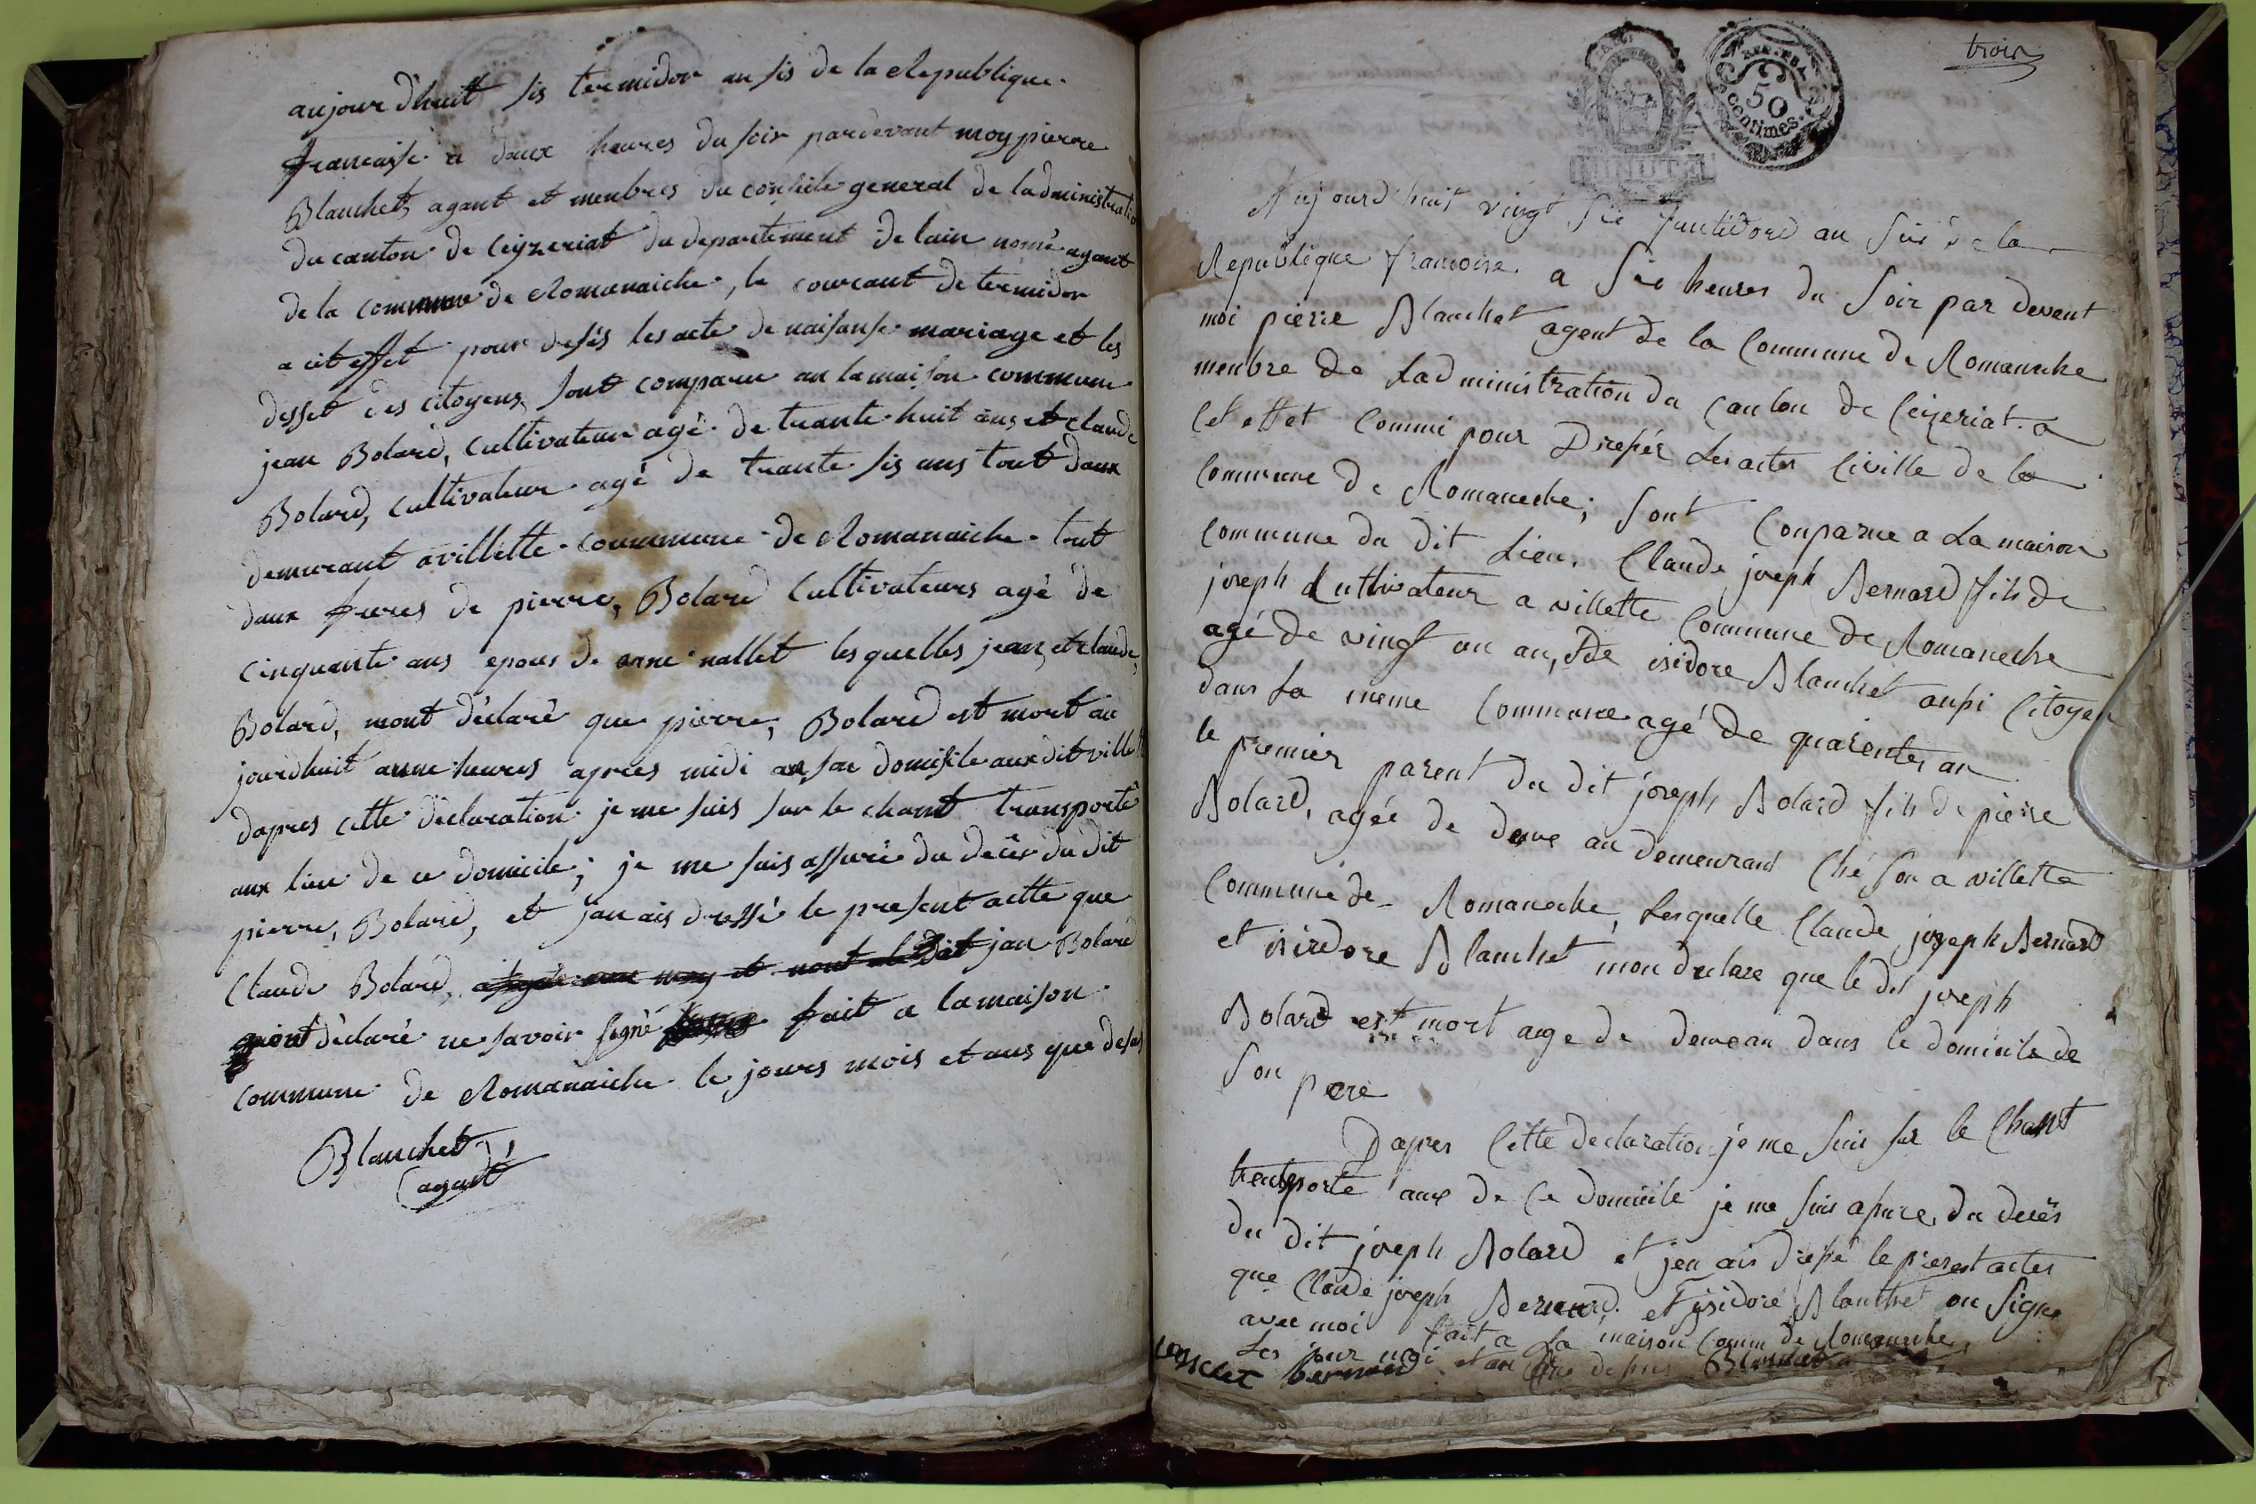 aujour dhuit sis termidor an sis de la Republique
francaise a daux heures du soir pardevant moy pierre
Blanchet, agant et menbres du conseile general de ladministratio
du canton de Ceyzeriat du departement de lain nomé agant
de la commune de Romanaiche, le courcant de termidor
a cit effet pour desés les acte de naisanse mariage et les
desset des citoyens, sont comparu au la maison commune
jean Bolard, cultivateur agé de trante huit ans et claude
Bolard, cultivateur agé de trante sis ans tout daux
demurant a villette commune de Romanaiche tout
daux freres de pierre, Bolard cultivateurs agé de
cinquante ans epous de anne nallet lesquelles jean, et claude,
Bolard, mont déclaré que pierre, Bolard est mort au
jourdhuit aune heures apries midi au son domisile aux dit villet
dapres cette déclaration je me suis sur le chamt transporté
aux lieu de ce domicile; je me suis assuré du décér du dit
pierre, Bolard, et jan ais dressé le present actte que
Claude Bolard, jan Bolard
quont déclaré ne savoir signé fait a la maison
commune de Romanaiche le jours mois et ans que deses
Blanchet
agant
trois
REP. FRA.
50
centimes
MINUTE
Aujourdhuit vingt sis fruttidord an sis de la
Republique francoise a sis heures du soir par devent
moi pierre Blanchet agent de la Commune de Romaneche
menbre de Ladministration du canton de Ceizeriat a
cet effet Commi pour Dresser Les actes Civille de la
Commune de Romaneche; sont Conparue a La maison
commune du dit Lieu, Claude joseph Bernard fils de
joseph Cultivateur a villette Commune de Romaneche
agé de vingt un an, de isidore Blanchet aussi Citoyen
dans La meme Commune agé de quarente an
le premier parent du dit joseph Bolard fils de pierre
Bolard, agée de deuve an demeurant Ché son a villette
Commune de Romaneche, Lesquelle Claude joseph Bernard
et isiredore Blanchet mon declare que le dit joseph
Bolard est mort aige de deuve an dans le domicile de
son pere
Dapres Cette declaration je me suis sur le Chant
trensporte aux de Ce Domicile je me suis assure, du deces
du dit joseph Bolard et jen ais dressé le present actes
que Claude joseph Bernard, et isidore Blanchet on signe
avec moi fait a La maison Comm de Romaneche
Les jour moi et an que desus Blanchet
bernard